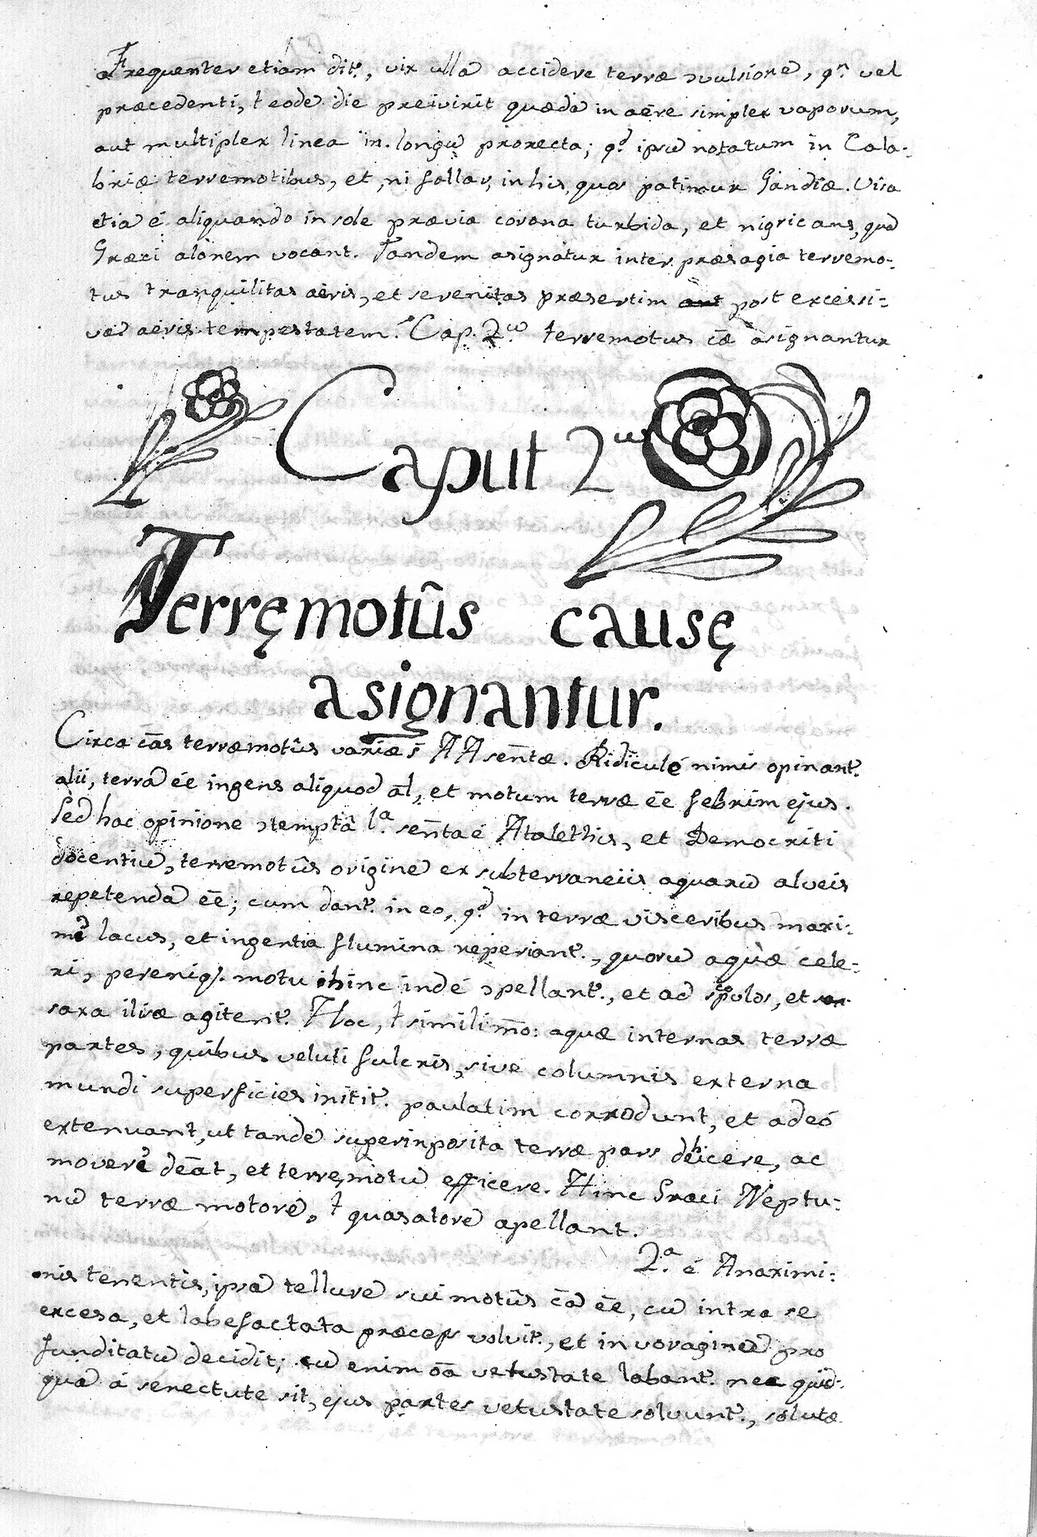 Frequenter etiam dit.r, vix ulla accidere terræ ɔvulsione, q.n vel
præcedenti, ł eode die preivirit quædā in aëre simplex vaporum,
aut multiplex linea in longū prorecta; q.d ipsū notatum in Cala-
briæ terremotibus, et, ni fallar, in his, quos patimur Gandiæ. Visa
etia é aliquando in sole prævia corona turbida, et nigricans, quā
Græci alonem vocant. Tandem asignatur inter præsagia terremo-
tus tranquilitas aëris, et serenitas præsertim post excessi-
vā aëris tempestatem. Cap. 2.us terremotus cæ asignantur
Caput 2us
Terręmotûs causę
asignantur.
Circa cas terræmotûs variæ s AA sentæ. Ridiculé nimis opinant.r
alii, terrā éē ingens aliquod al, et motum terræ éē febrim ejus.
Sed hac opinione ɔtemptâ 1.a senta é Atalethis, et Democriti
docentiū, terremotûs origine ex subterraneiis aquarū alveis
repetendā éē; cum dant.r in eo, q.d in terræ visceribus maxi-
mi lacus, et ingentia flumina reperiant.r, quorū aquæ céle-
ri, pereniq. motu hinc indé ɔpellant.r, et ad scopulos, et
saxa illæ agitent.r Hoc, ł simili mo: aquæ internas terræ
partes, quibus veluti fulcris, sive columnis externa
mundi superficies initit.r paulatim corrodunt, et adeó
extenuant, ut tandē superinposita terræ pars dehicere, ac
moveri deat, et terręmotū efficere. Hinc Græci Neptu-
nū terræ motorē, ł quasatorē apellant.
2.a é Anaximi-
nis tenentis, ipsā tellurē sui motûs cā éē, cū intra se
excesa, et labefactata præceps volvit.r, et in voraginē pro
funditatū decidit; cū enim oa vetustate labant.r nec quid-
quā á senectute sit, ejus partes vetustate solvunt.r, solutæ